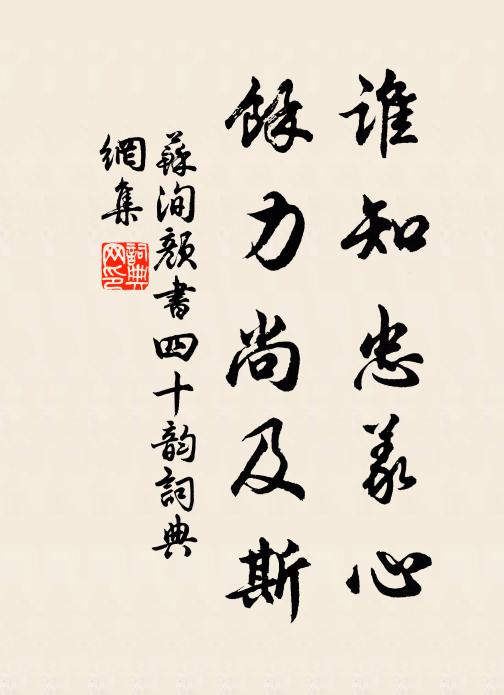 誰知忠義心
餘力尚及斯
蘇洵顏書四十韵詞典
網集
詞典
网印